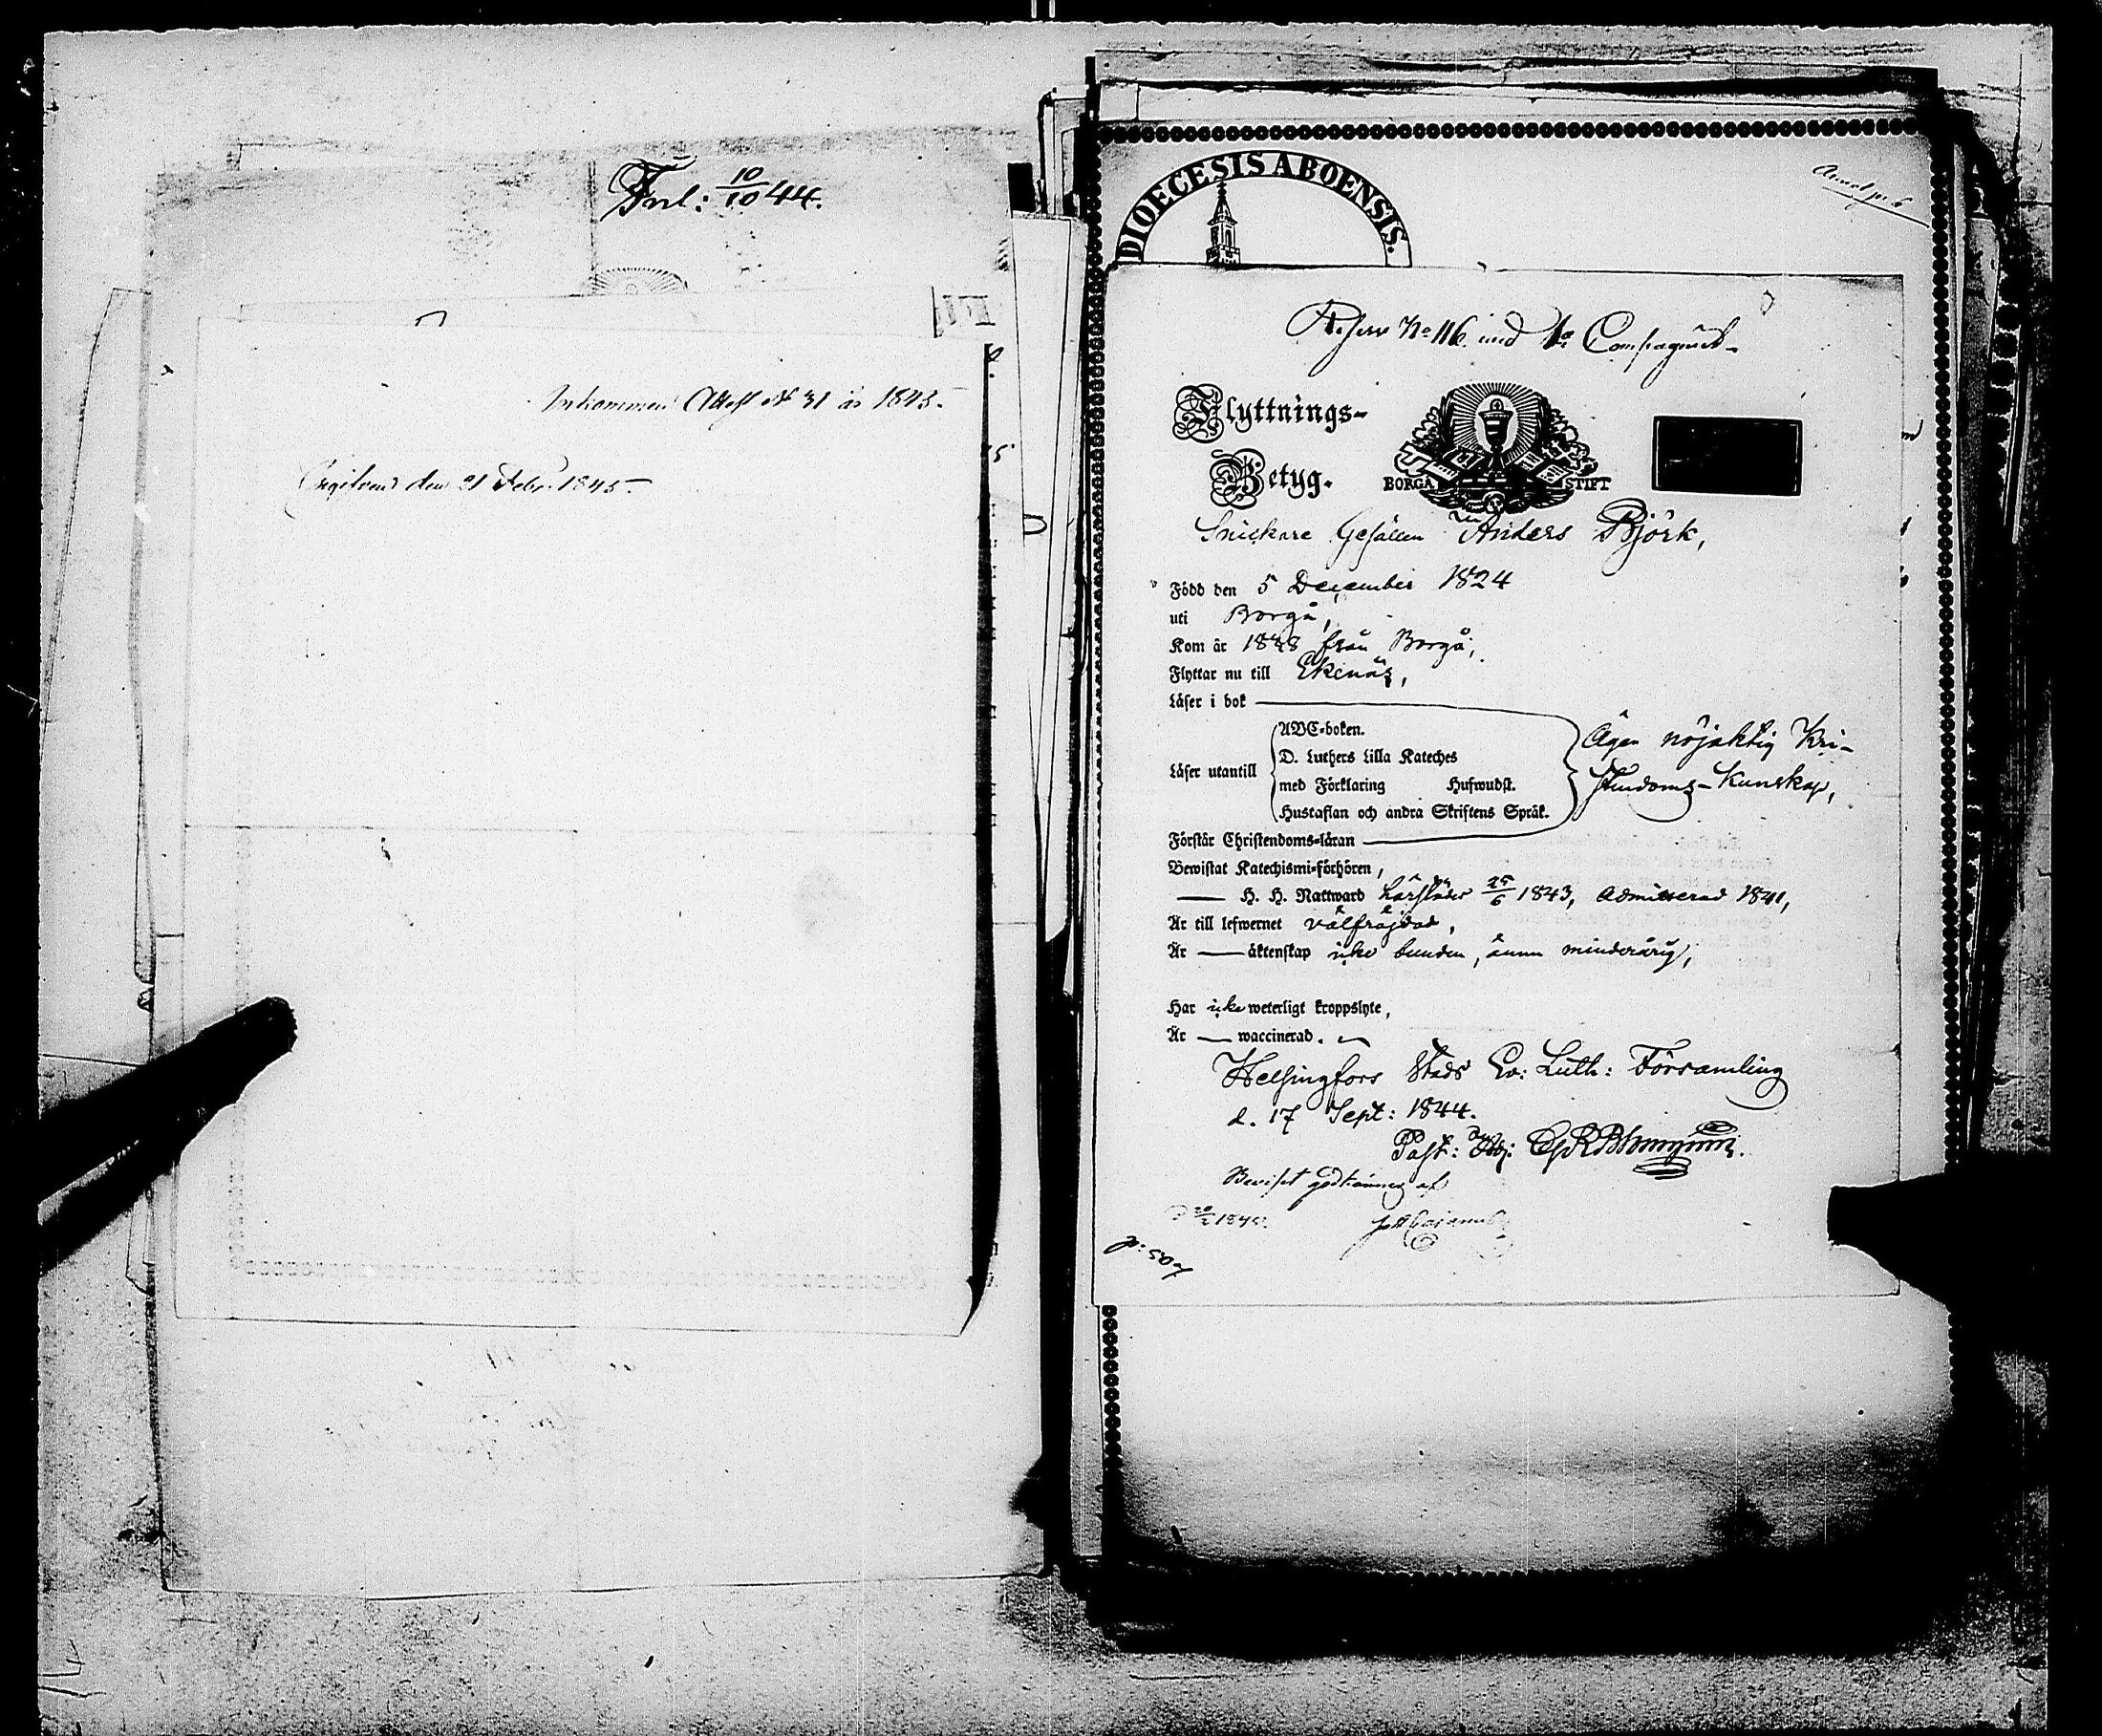 Inl: 10/10 44.
Inkommen Attest № 31 år 1845.
Ingifven den 21 Febr. 1845.
DIOECESIS ABOENSIS.
№ 116 vid Compagniet
Flyttnings-
Betyg.
BORGÅ STIFT
Snickare Gesällen Anders Björk,
Född den 5 December 1824
uti Borgå,
Kom år 1838 från Borgå,
Flyttar nu till Ekenäs,
Läser i bok
Läser utantill
ABC-boken.
D. Luthers Lilla Kateches
med Förklaring Hufwudst.
Hustaflan och andra Skriftens Språk.
Äger nöjaktig Kri-
stendoms-Kunskap,
Förstår Christendoms-läran
Bewistat Katechismi-förhören,
— H. H. Nattward härstädes 25/6 1843, admitterad 1841,
Är till lefwernet välfräjdad,
Är — äktenskap icke bunden, ännu minderårig,
Har icke weterligt kroppslyte,
Är — waccinerad.
Helsingfors Stads Ev: Luth: Församling
d. 17 Sept: 1844.
Past: Adj:
Beviset godkännes af
1845.
p: 507